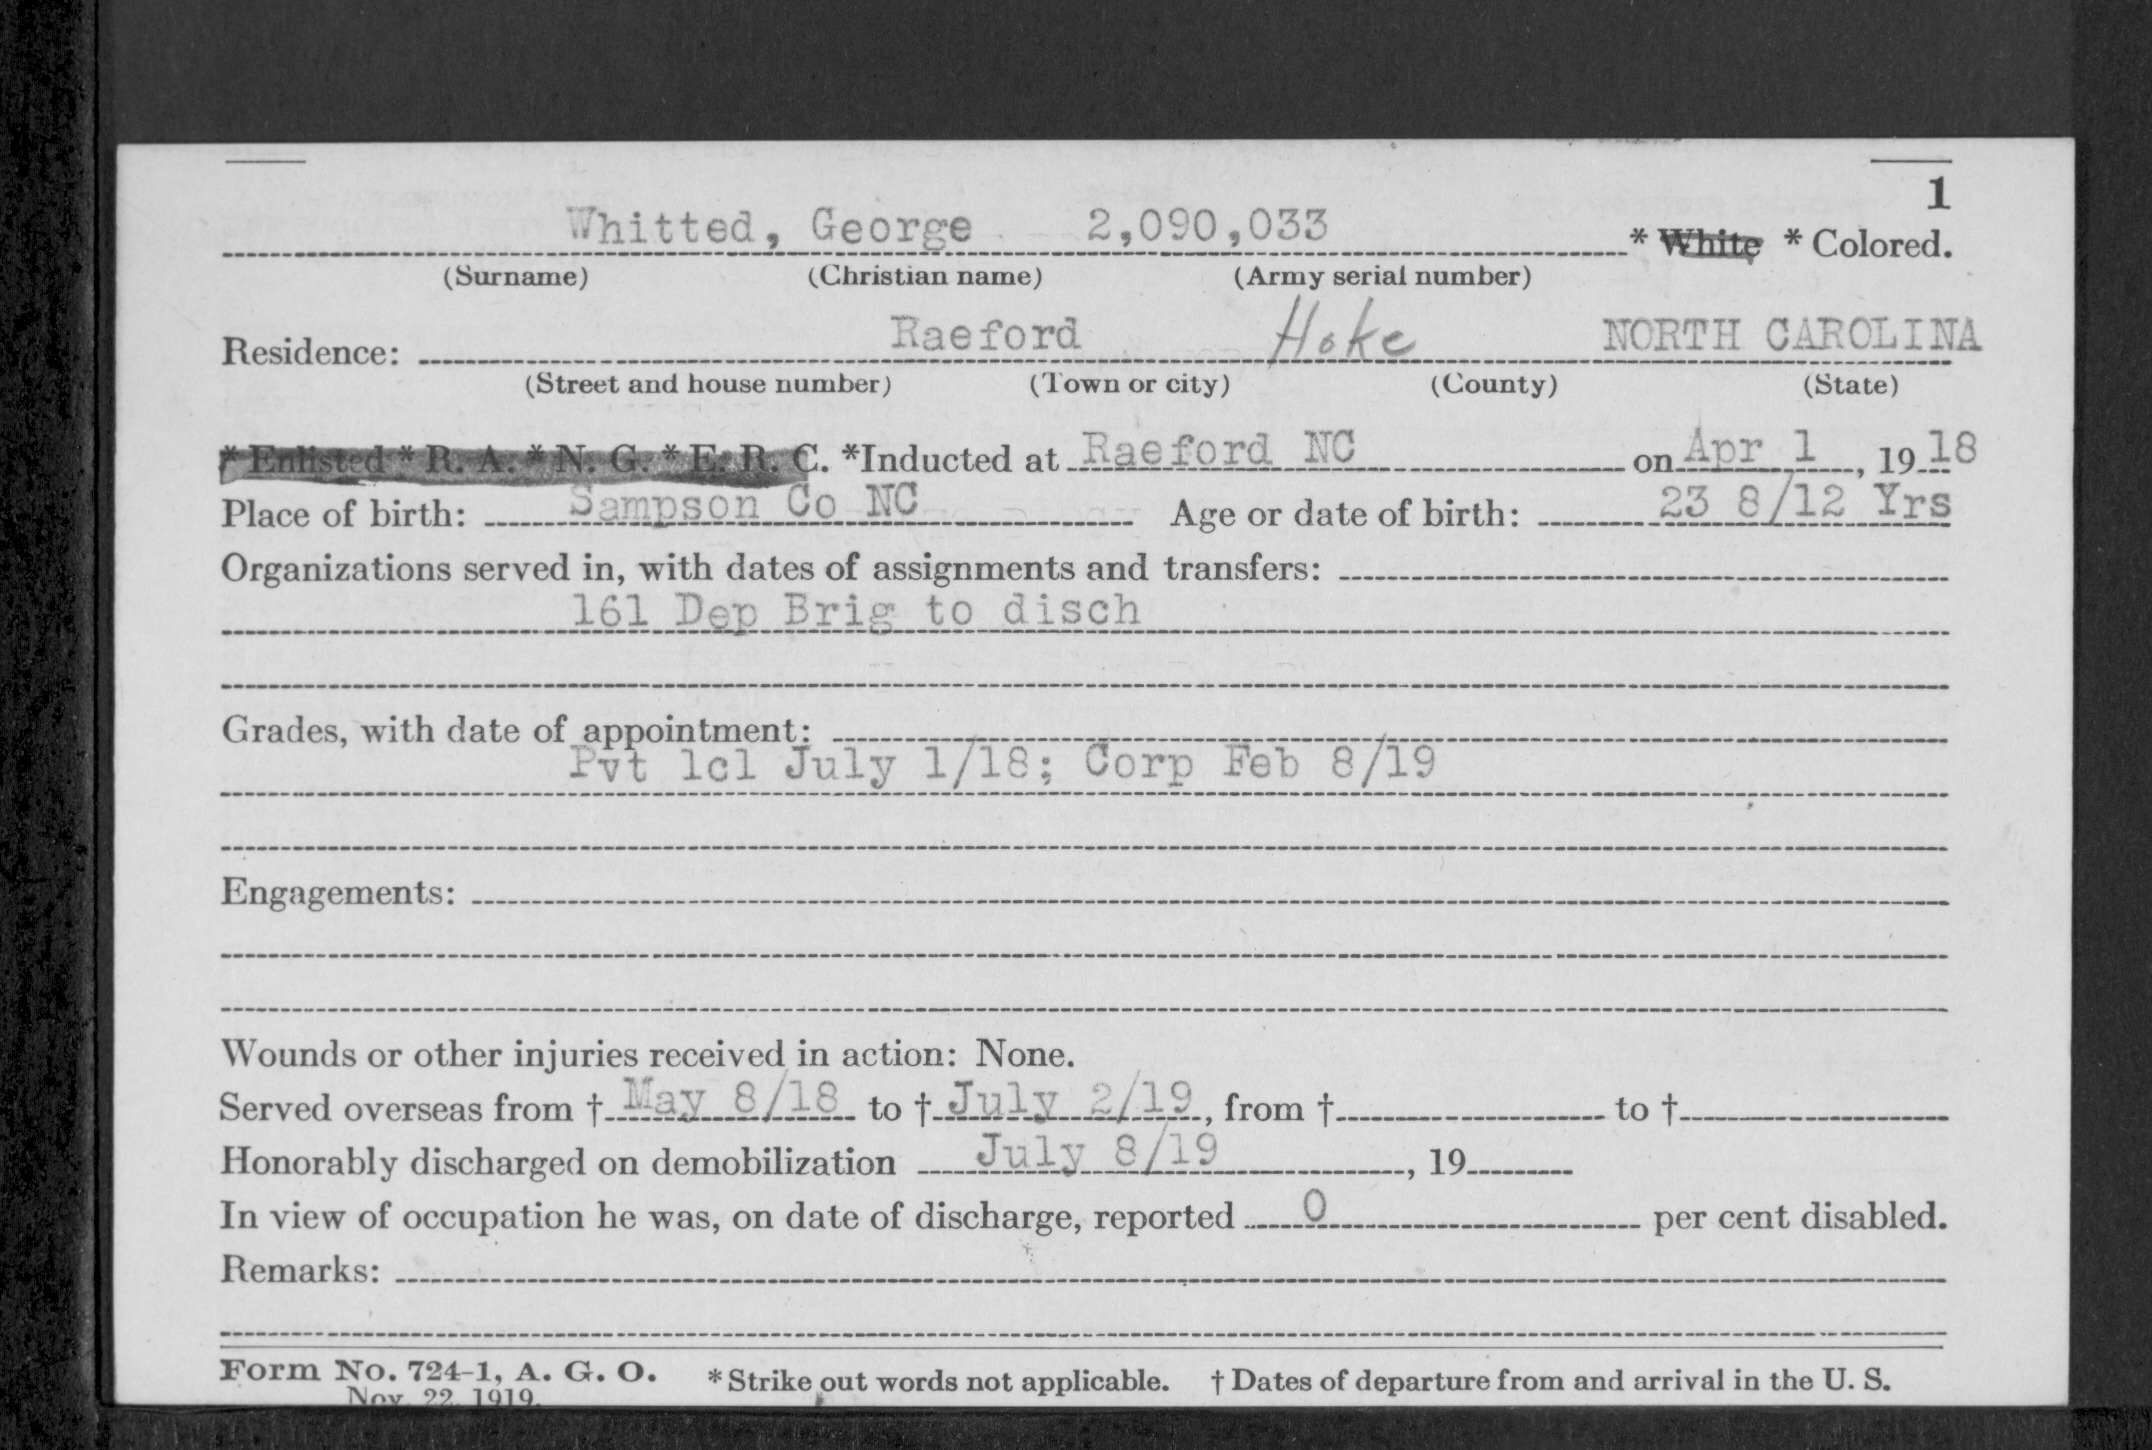 1
Whitted, George 2,090,033 * White * Colored.
(Surname) (Christian name) (Army serial number)
Residence: Raeford Hoke NORTH CAROLINA
(Street and house number) (Town or city) (County) (State)
* Enlisted * R. A. * N. G. * E. R. C. *Inducted at Raeford NC on Apr 1, 1918
Place of birth: Sampson Co NC Age or date of birth: 23 8/12 Yrs
Organizations served in, with dates of assignments and transfers:
161 Dep Brig to disch
Grades, with date of appointment:
Pvt 1cl July 1/18; Corp Feb 8/19
Engagements:
Wounds or other injuries received in action: None.
Served overseas from † May 8/18 to † July 2/19, from † to †
Honorably discharged on demobilization July 8/19, 19
In view of occupation he was, on date of discharge, reported 0 per cent disabled.
Remarks:
Form No. 724-1, A. G. O. * Strike out words not applicable. † Dates of departure from and arrival in the U. S.
Nov. 22, 1919.